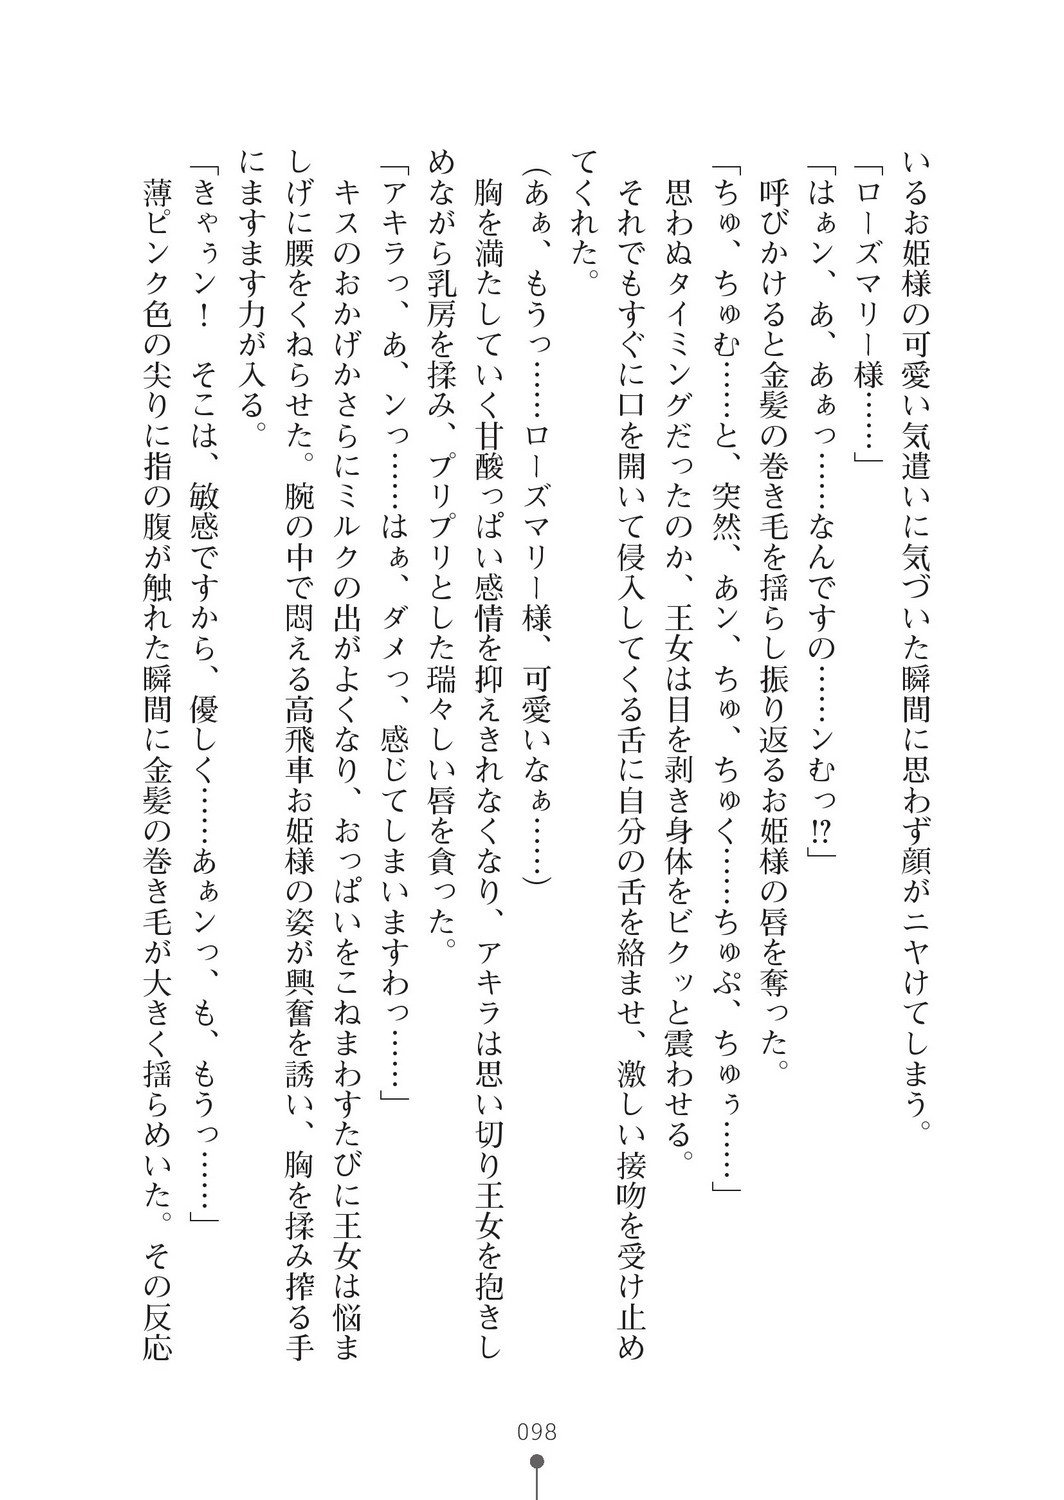 いるお姫様の可愛い気遣いに気づいた瞬間に思わず顔がニヤけてしまう。
「ローズマリー様……」
「はぁン、あ、あぁっ……なんですの……ンむっ!?」
呼びかけると金髪の巻き毛を揺らし振り返るお姫様の唇を奪った。
「ちゅ、ちゅむ……と、突然、あン、ちゅ、ちゅく……ちゅぷ、ちゅぅ……」
思わぬタイミングだったのか、王女は目を剥き身体をビクッと震わせる。
それでもすぐに口を開いて侵入してくる舌に自分の舌を絡ませ、激しい接吻を受け止め
てくれた。
(あぁ、もうっ……ローズマリー様、可愛いなぁ……)
胸を満たしていく甘酸っぱい感情を抑えきれなくなり、アキラは思い切り王女を抱きし
めながら乳房を揉み、プリプリとした瑞々しい唇を貪った。
「アキラっ、あ、ンっ……はぁ、ダメっ、感じてしまいますわっ……」
キスのおかげかさらにミルクの出がよくなり、おっぱいをこねまわすたびに王女は悩ま
しげに腰をくねらせた。腕の中で悶える高飛車お姫様の姿が興奮を誘い、胸を揉み搾る手
にますます力が入る。
「きゃぅン! そこは、敏感ですから、優しく……あぁンっ、も、もうっ……」
薄ピンク色の尖りに指の腹が触れた瞬間に金髪の巻き毛が大きく揺らめいた。その反応
098